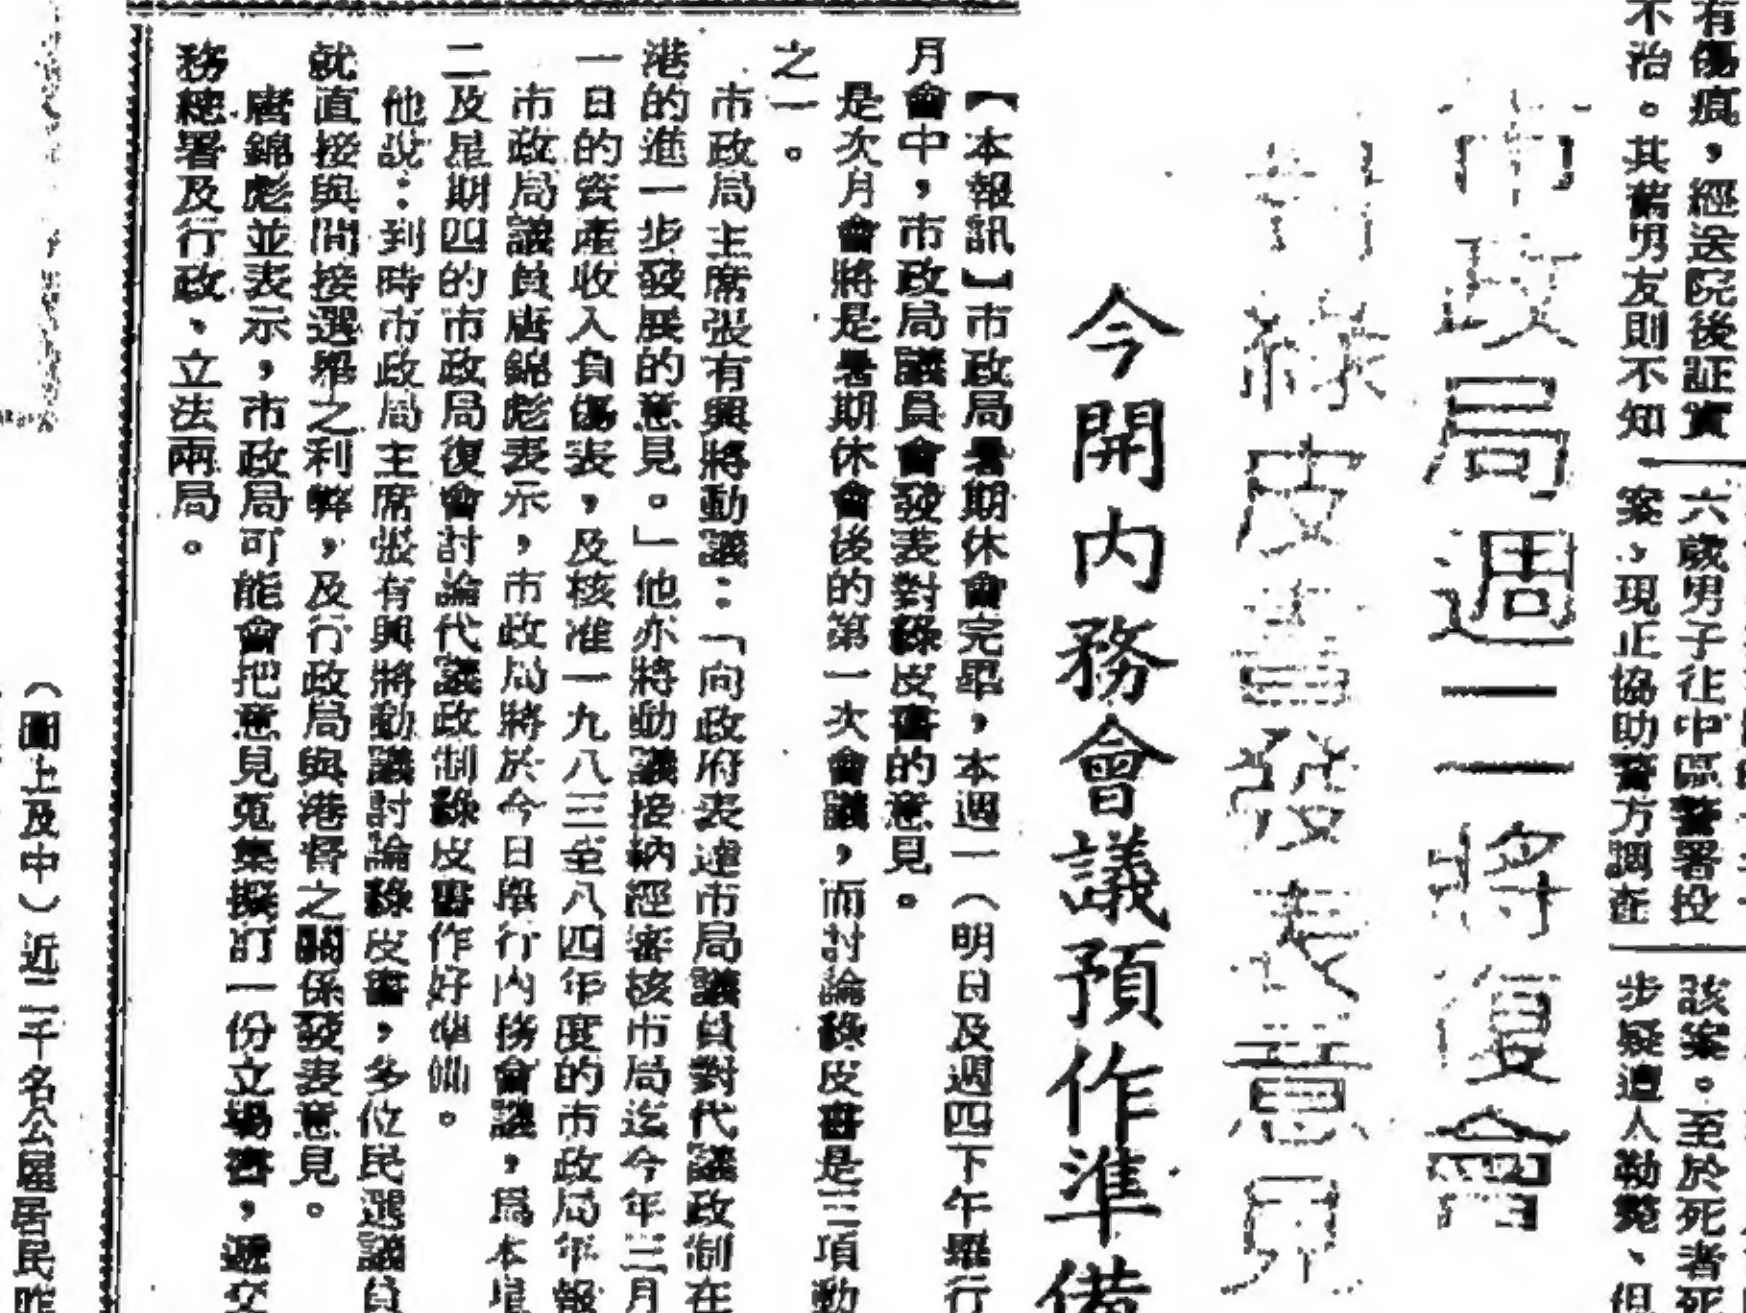 有傷痕，經送院後証實
不治。其舊男友則不知
六歲男子往中區警署投
案，現正協助警方調查
該案。至於死者死
步疑遭人勒斃、但
市政局週二將復會
討綠皮書發表意見
今開內務會議預作準備
【本報訊】市政局暑期休會完畢，本週一（明日及週四下午舉行
月會中，市政局議員會發表對綠皮書的意見。
是次月會將是暑期休會後的第一次會議，而討論綠皮書是三項動
之一。
市政局主席張有興將動議：「向政府表達市局議員對代議政制在
港的進一步發展的意見。」他亦將動議接納經審核市局迄今年三月
一日的資產收入負債表，及核准一九八三至八四年度的市政局年報
市政局議員唐錦彪表示，市政局將於今日舉行內務會議，為本星
二及星期四的市政局復會討論代議政制綠皮書作好準備。
他說：到時市政局主席張有興將動議討論綠皮書，多位民選議員
就直接與間接選舉之利弊，及行政局與港督之關係發表意見。
唐錦彪並表示，市政局可能會把意見蒐集擬訂一份立場書，遞交
務總署及行政、立法兩局。
（圖上及中）近二千名公屋居民昨